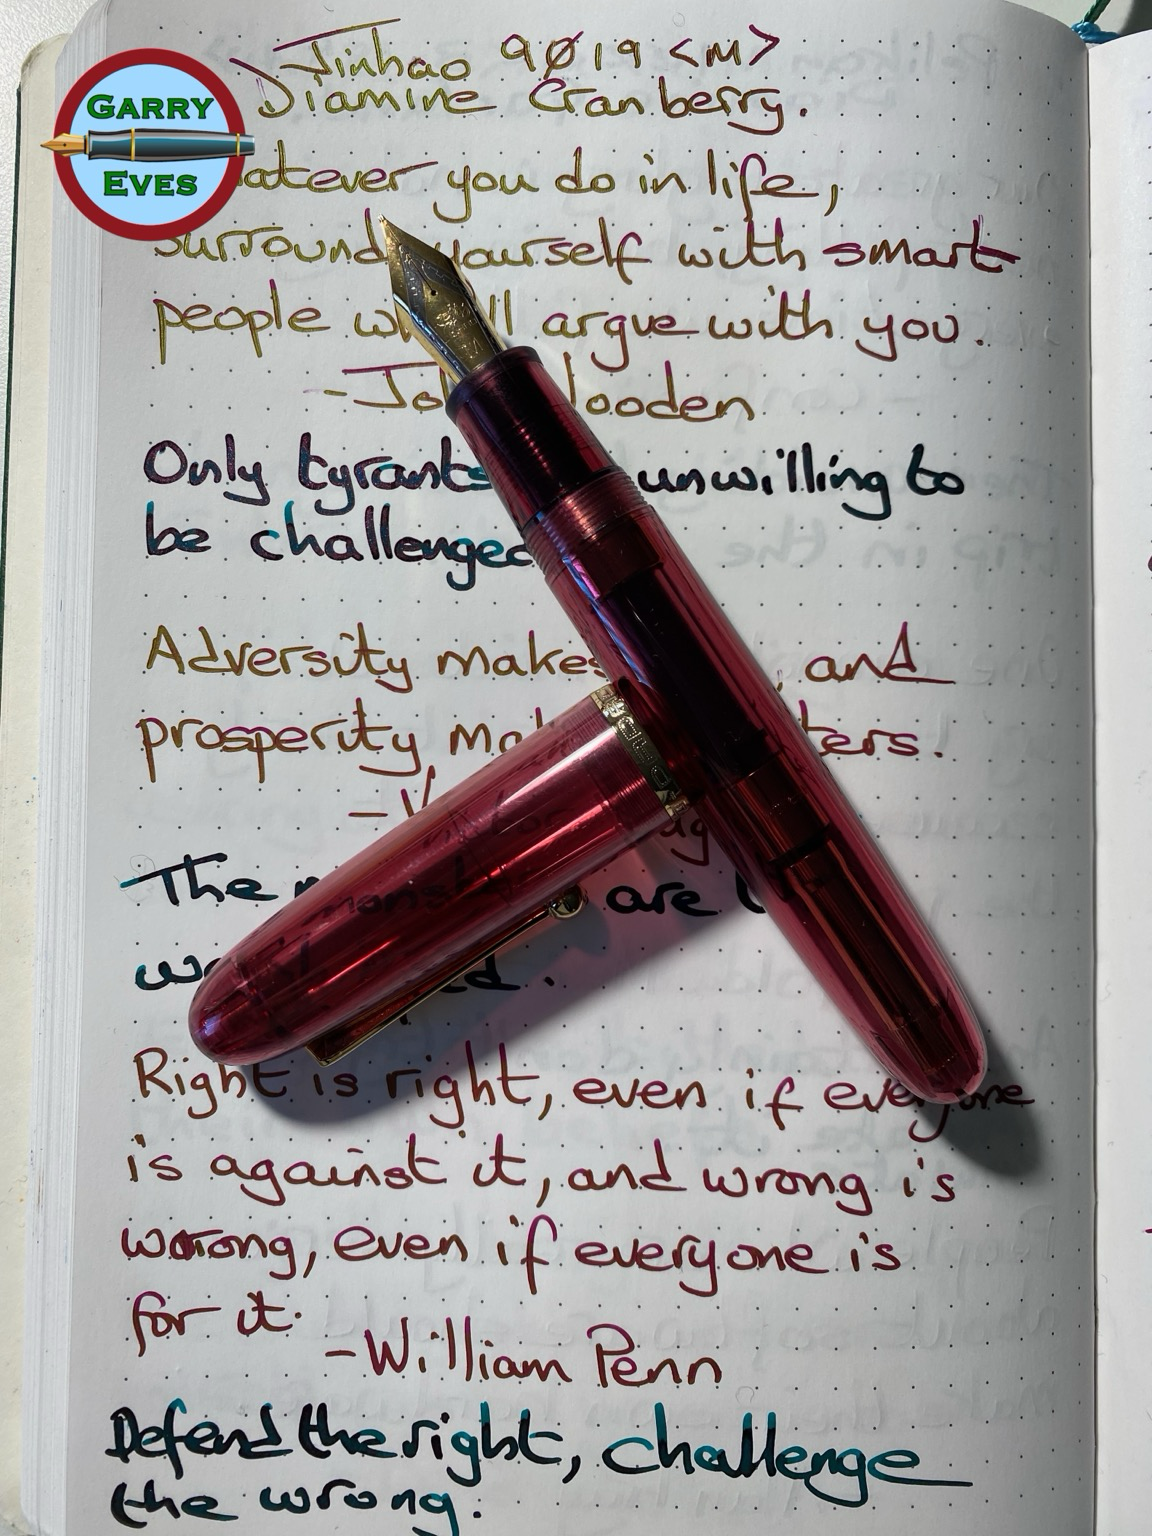 GARRY
EVES
Jinhao 9019 <M>
Diamine Cranberry.
you do in life,
surround yourself with smart
people argue with you.
- Wooden
Only tyrants unwilling to
be challenged
Adversity makes , and
prosperity
-
The are
.
Right is right, even if everyone
is against it, and wrong is
wrong, even if everyone is
for it.
-William Penn
Defend the right, challenge
the wrong.